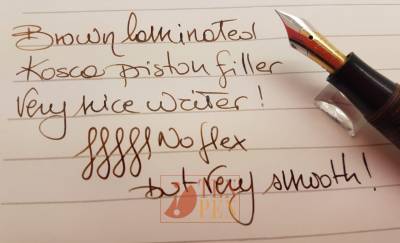 Brown laminated
Kosca piston filler
Very nice writer!
No flex
but very smooth!